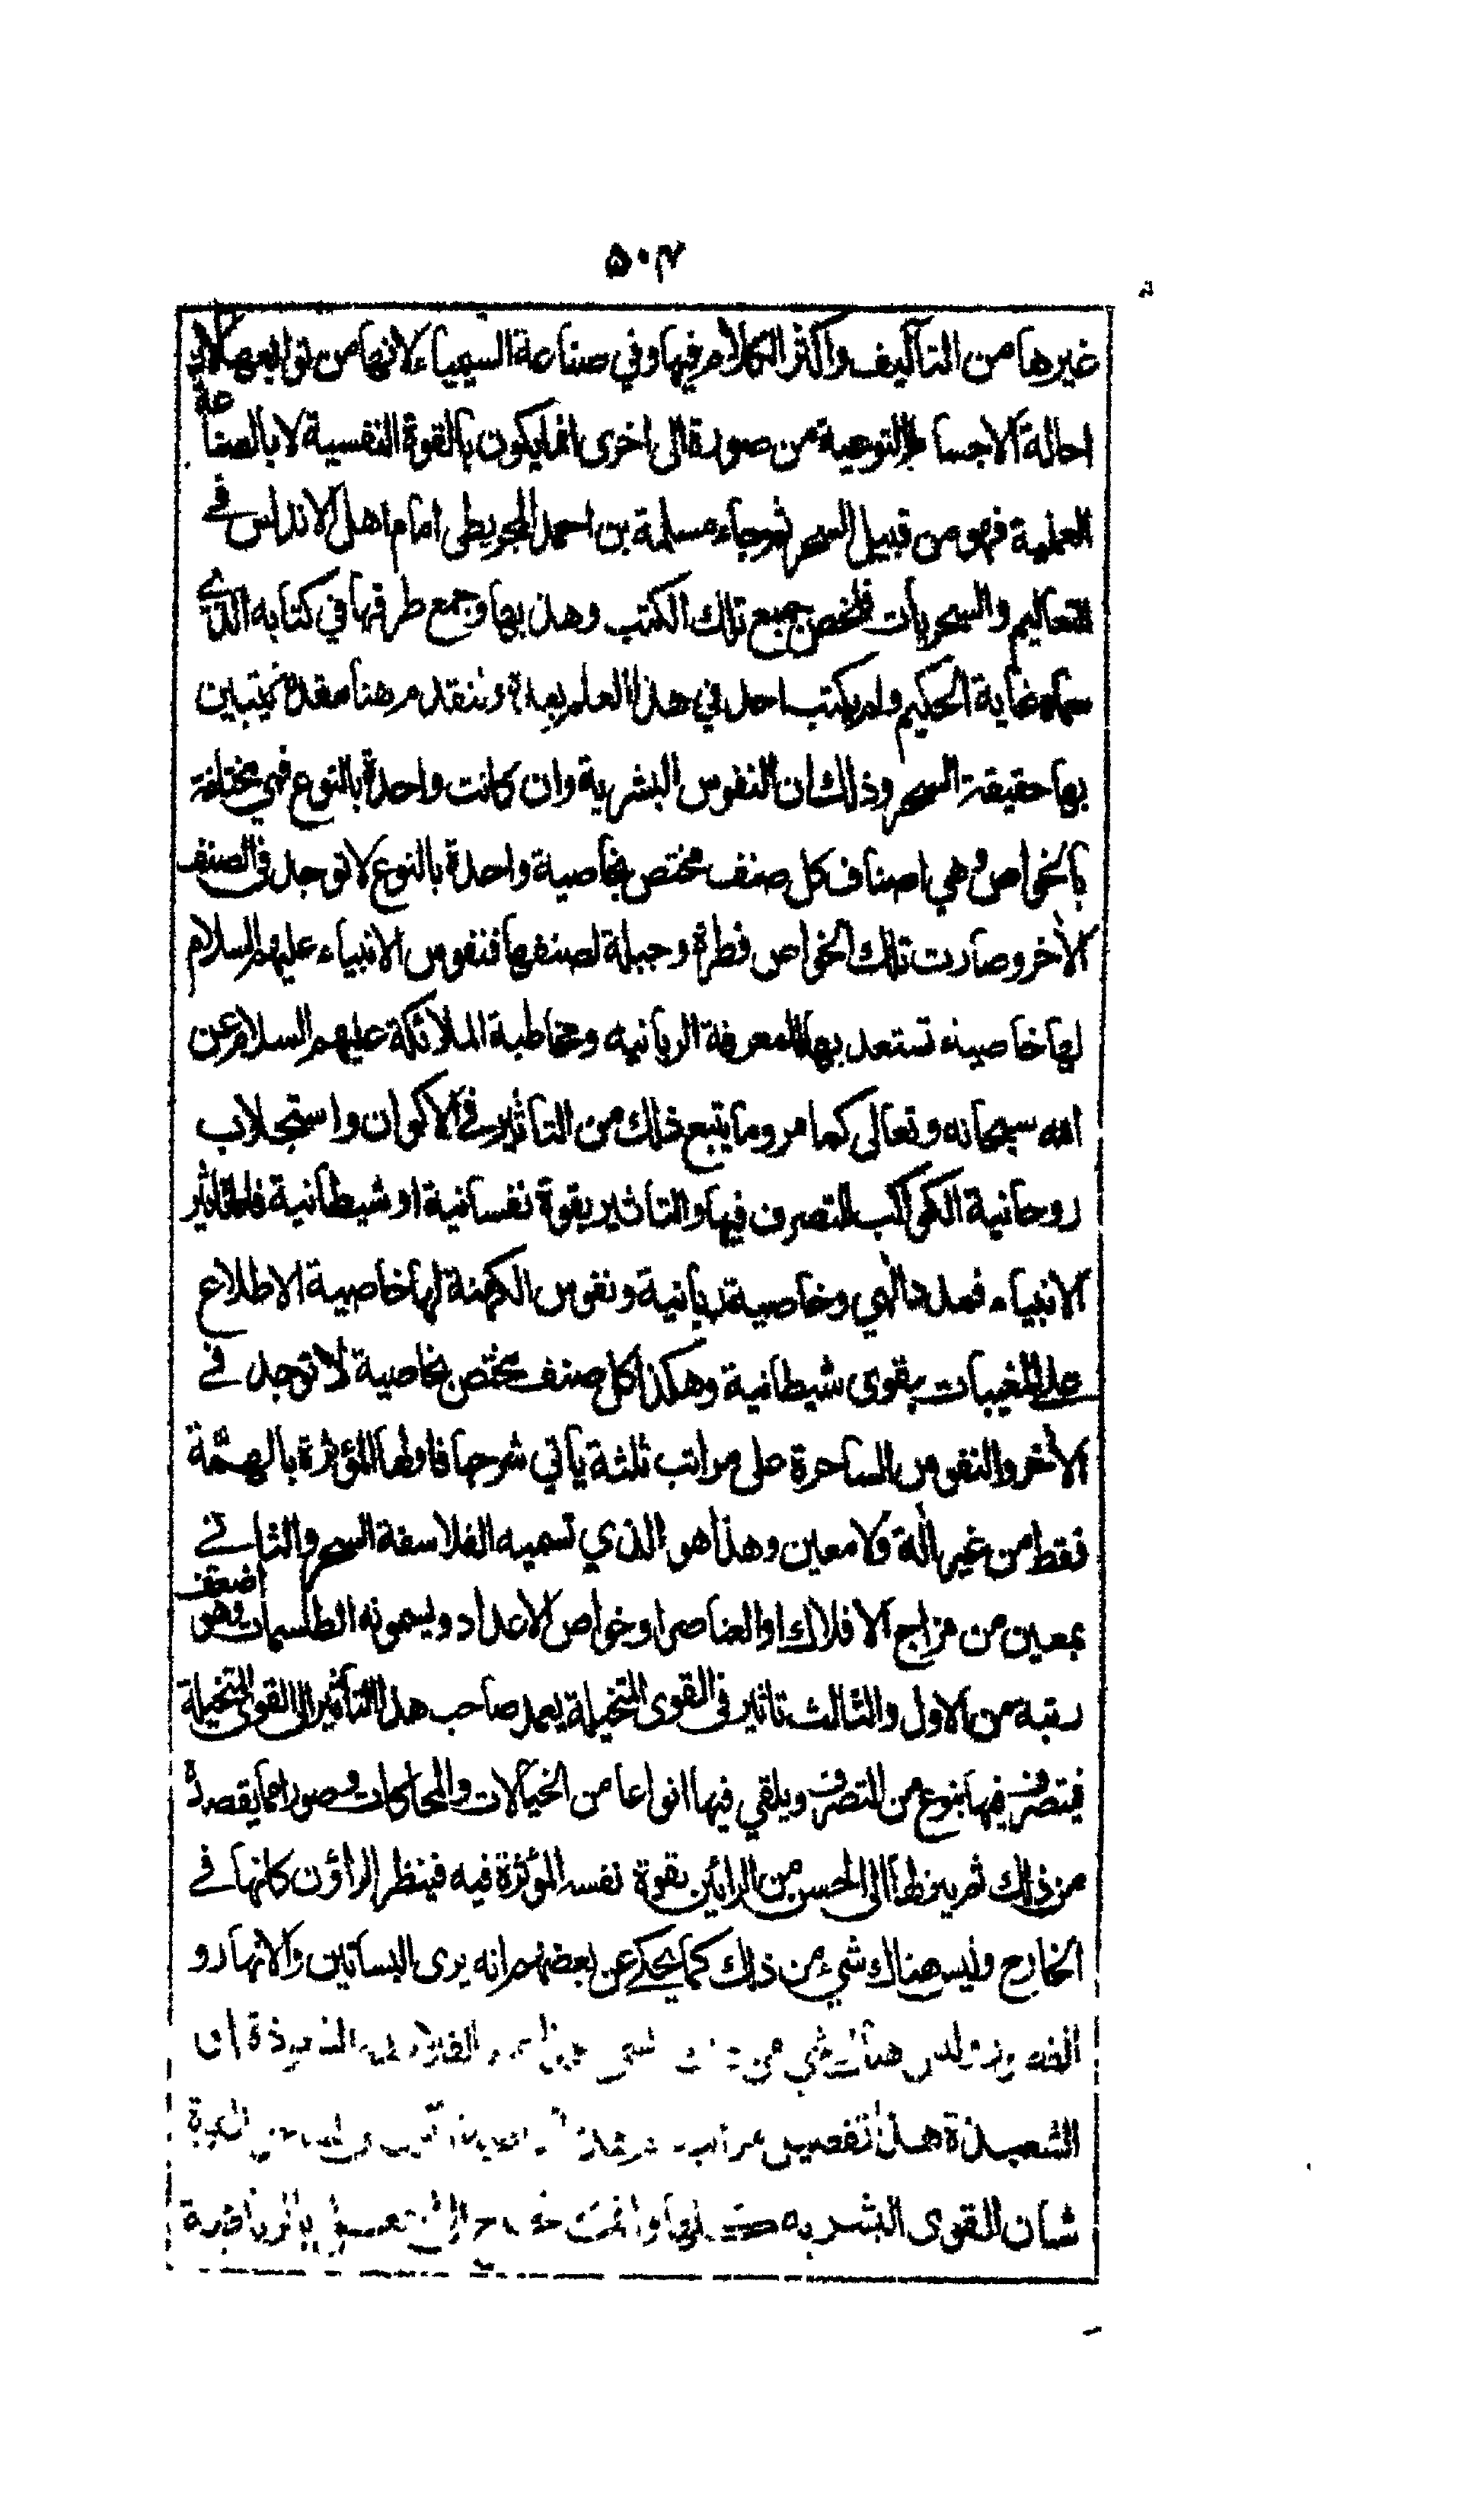 ۵۰۴
غيرها من التآليف واكثر الكلام فيها وفي صناعة السيمياء لانها من توابعها لان
احالة الاجسام النوعية من صورة الى اخرى انما يكون بالقوة النفسية لا بالصناعة
العلمية فهو من قبيل السحر ثم جاء مسلمة بن احمد المجريطى امام اهل الاندلس في
التعاليم والسحريات فلخص جميع تلك الكتب وهذبها وجمع طرقها في كتابه الذي
سماه غاية الحكيم ولم يكتب احد في هذا العلم بعده ونتقدم هنا مقدمة يتبين
بها حقيقة السحر وذلك ان النفوس البشرية وان كانت واحدة بالنوع فهي مختلفة
بالخواص وهي اصناف كل صنف مختص بخاصية واحدة بالنوع لا توجد فى الصنف
الأخر وصارت تلك الخواص فطرة وجبلة لصنفها فنفوس الانبياء عليهم السلام
لها خاصية تستعد بها للمعرفة الربانيه ومخاطبة الملائكة عليهم السلام عن
الله سبحانه وتعالى كما مر وما يتبع ذلك من التأثير في الاكوان واستجلاب
روحانية الكواكب للتصرف فيها والتاثير بقوة نفسانية او شيطانية فاما تاثير
الانبياء فمدد الهي وخاصية ربانية ونفوس الكهنة لها خاصية الاطلاع
على المغيبات بقوى شيطانية وهكذا كل صنف مختص بخاصية لا توجد في
الأخر والنفوس الساحرة على مراتب ثلثة يأتي شرحها فاولها المؤثرة بالهمّة
فقط من غير الة ولا معين وهذا هو الذي تسميه الفلاسفة السحر والثاني
بمعين من مزاج الافلاك او العناصر او خواص الاعداد ويسمونه الطلسمات وهو اضعف
رتبة من الاول والثالث تاثير فى القوى المتخيلة يعمد صاحب هذا التأثير الى القوى المتخيلة
فيتصرف فيها بنوع من التصرف ويلقي فيها انواعا من الخيالات والمحاكات وصورا مما يقصده
من ذلك ثم ينزلها الى الحس من الرائين بقوة نفسه المؤثرة فيه فينظر الراؤن كانها في
الخارج وليس هناك شيء من ذلك كما يحكى عن بعضهم انه يرى البساتين والانهار و
وليس هناك شي من الفلاسفة او
الشعبذة هذا تفصيل مراتبه
شان القوى البشريه كلها وانما بالرياضة